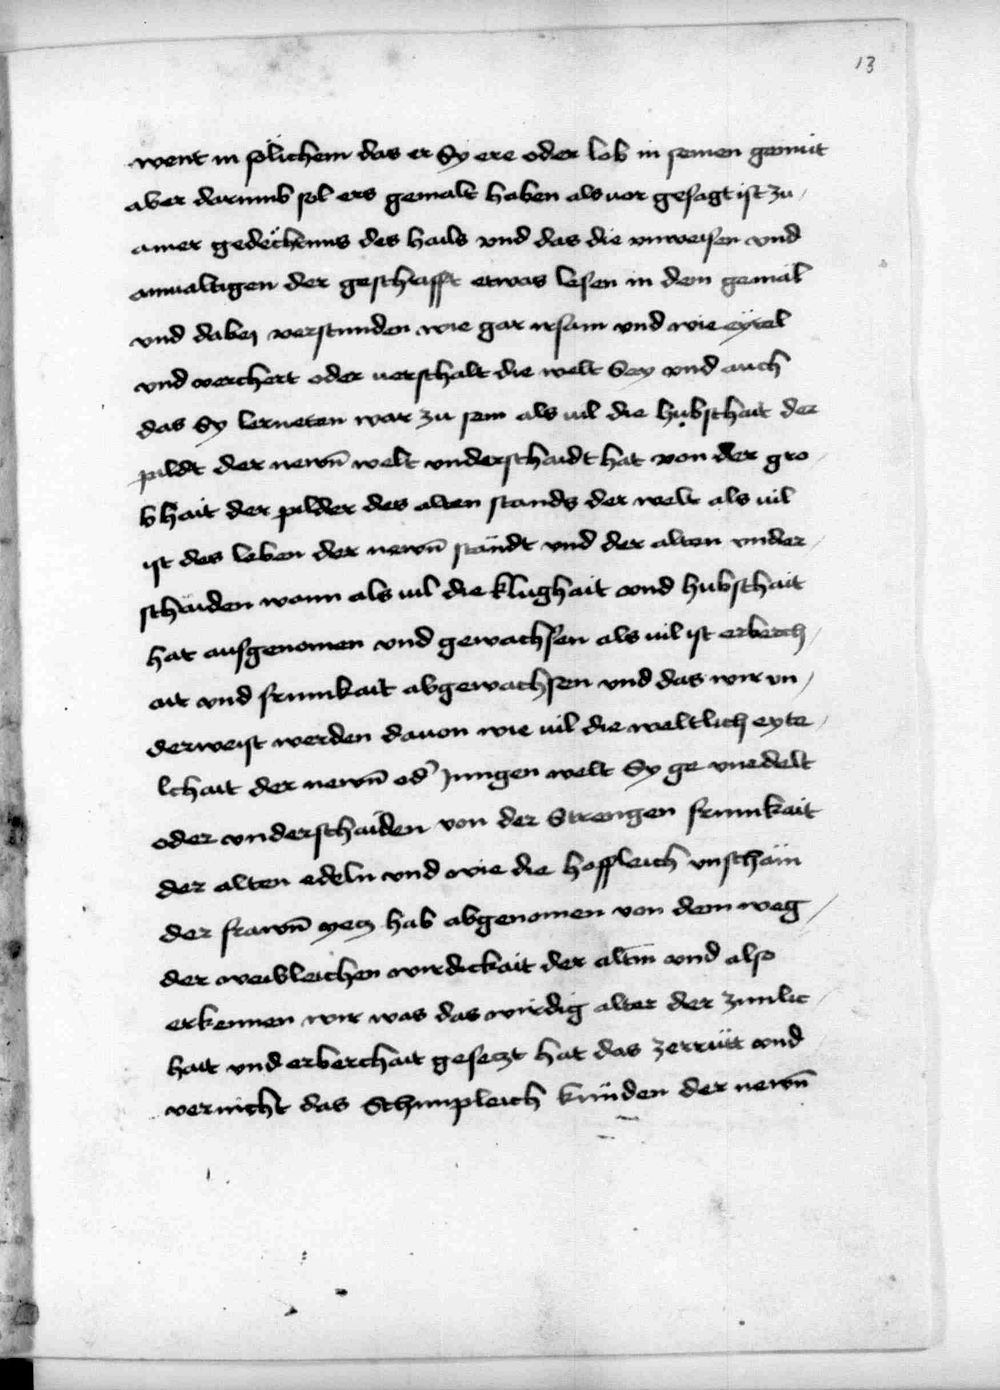 13
went in sölichem das er Sy ere oder lob in seinen gemüt
aber darumb sol ers gemalt haben als uor gesagt ist zu
ainer gedëchtnus des hails vnd das die vnweisen vnd
ainualtigen der geschrifft etwas lesen in dem gemäl
vnd dabey verstunden wie gar irsam vnd wie eytel
vnd verchert oder uerschalt die welt Sey vnd auch
das Sy lerneten war zu sein als uil die hubschait der
pildt der newn̄ welt vnderschaidt hat von der gro
bhait der pilder des alten stands der welt als uil
ist des leben der newn̄ ständt vnd der alten vnder
schaiden wann als uil die klughait vnd hubschait
hat aufgenomen vnd gewachsen als uil ist erberch
ait vnd frumkait abgewachsen vnd das wir vn
derweist werden dauon wie uil die weltlich eyte
lchait der newn̄ od' Jungen welt Sy ge vnedelt
oder vnderschaiden von der Strengen frumkait
der alten edeln vnd wie die hoffleich vnschäm
der frawn̄ yecz hab abgenomen von dem weg
der weibleichen wirdickait der altn̄ vnd also
erkennen wir was das wirdig alter der zimlic
hait vnd erberchait geseczt hat das zerrütt vnd
vernicht das Schimpleich künden der newn̄